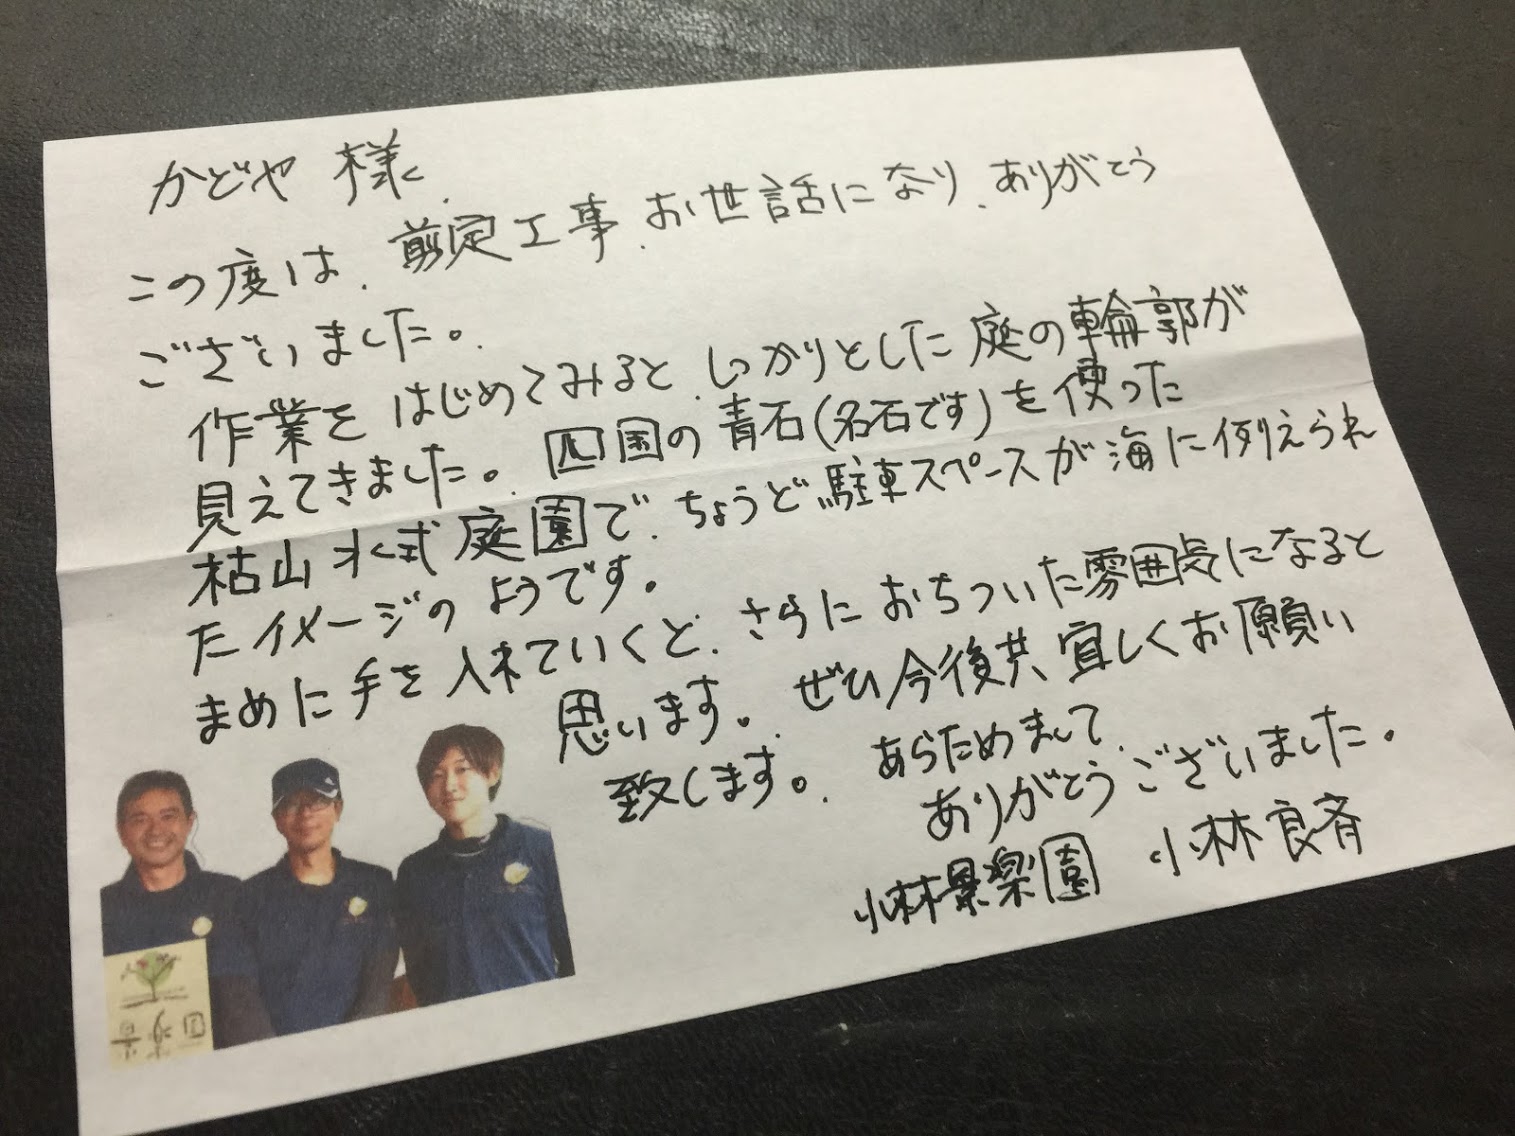 かどや 様
この度は、剪定工事、お世話になり、ありがとう
ございました。
作業をはじめてみると、しっかりとした庭の輪郭が
見えてきました。四国の青石(名石です)を使った
枯山水式庭園で、ちょうど駐車スペースが海に例えられ
たイメージのようです。
まめに手を入れていくと、さらにおちついた雰囲気になると
思います。ぜひ今後共、宜しくお願い
致します。あらためまして
ありがとうございました。
小林景楽園 小林良斉